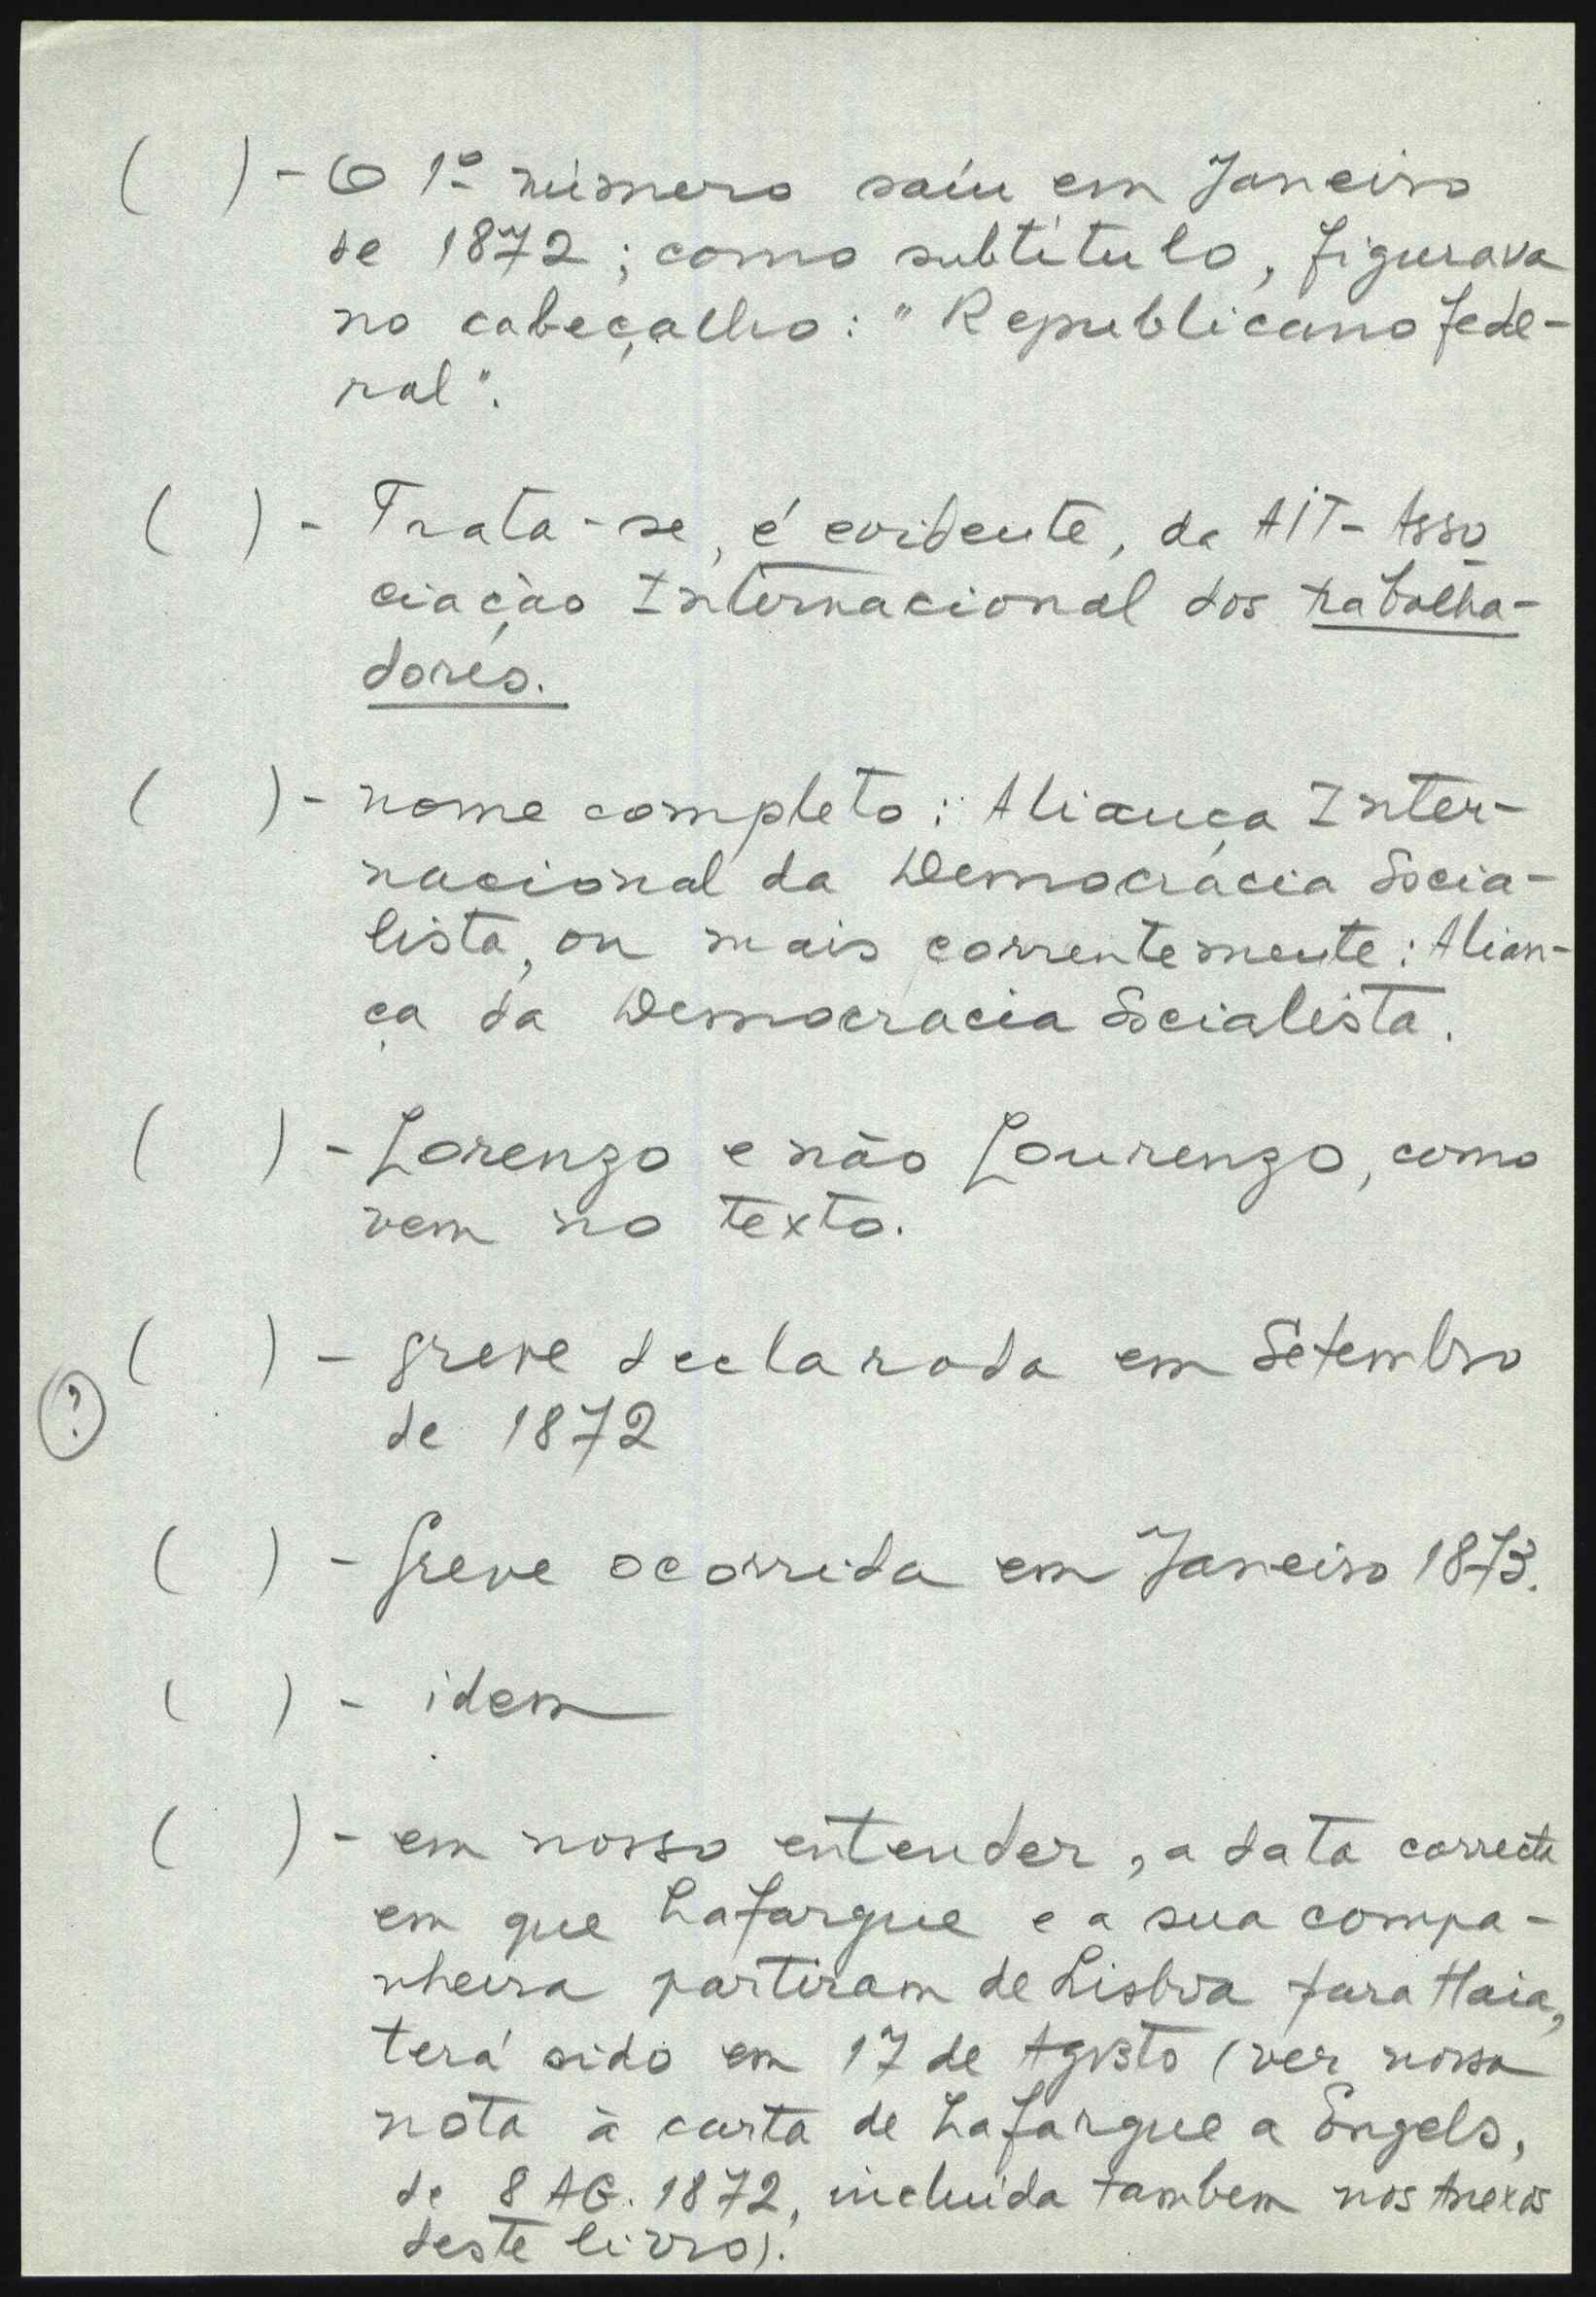 ( ) - O 1º número saíu em Janeiro
de 1872; como subtítulo, figurava
no cabeçalho: "Republicano fede-
ral".
( ) - Trata-se, é evidente, da AIT - Asso
ciação Internacional dos traba­lha-
dores.
( ) - nome completo: Aliança Inter-
nacional da Democrácia Socia-
lista, ou mais correntemente: Alian-
ça da Democracia Socialista.
( ) - Lorenzo e não Lourenzo, como
vem no texto.
( ) - greve declarada em Setembro
(?)
de 1872
( ) - Greve ocorrida em Janeiro 1873.
( ) - idem
( ) - em nosso entender, a data correcta
em que Lafargue e a sua compa-
nheira partiram de Lisboa para Haia,
terá sido em 17 de Agosto (ver nossa
nota à carta de Lafargue a Engels,
de 8 AG. 1872, incluída tambem nos Anexos
deste livro).